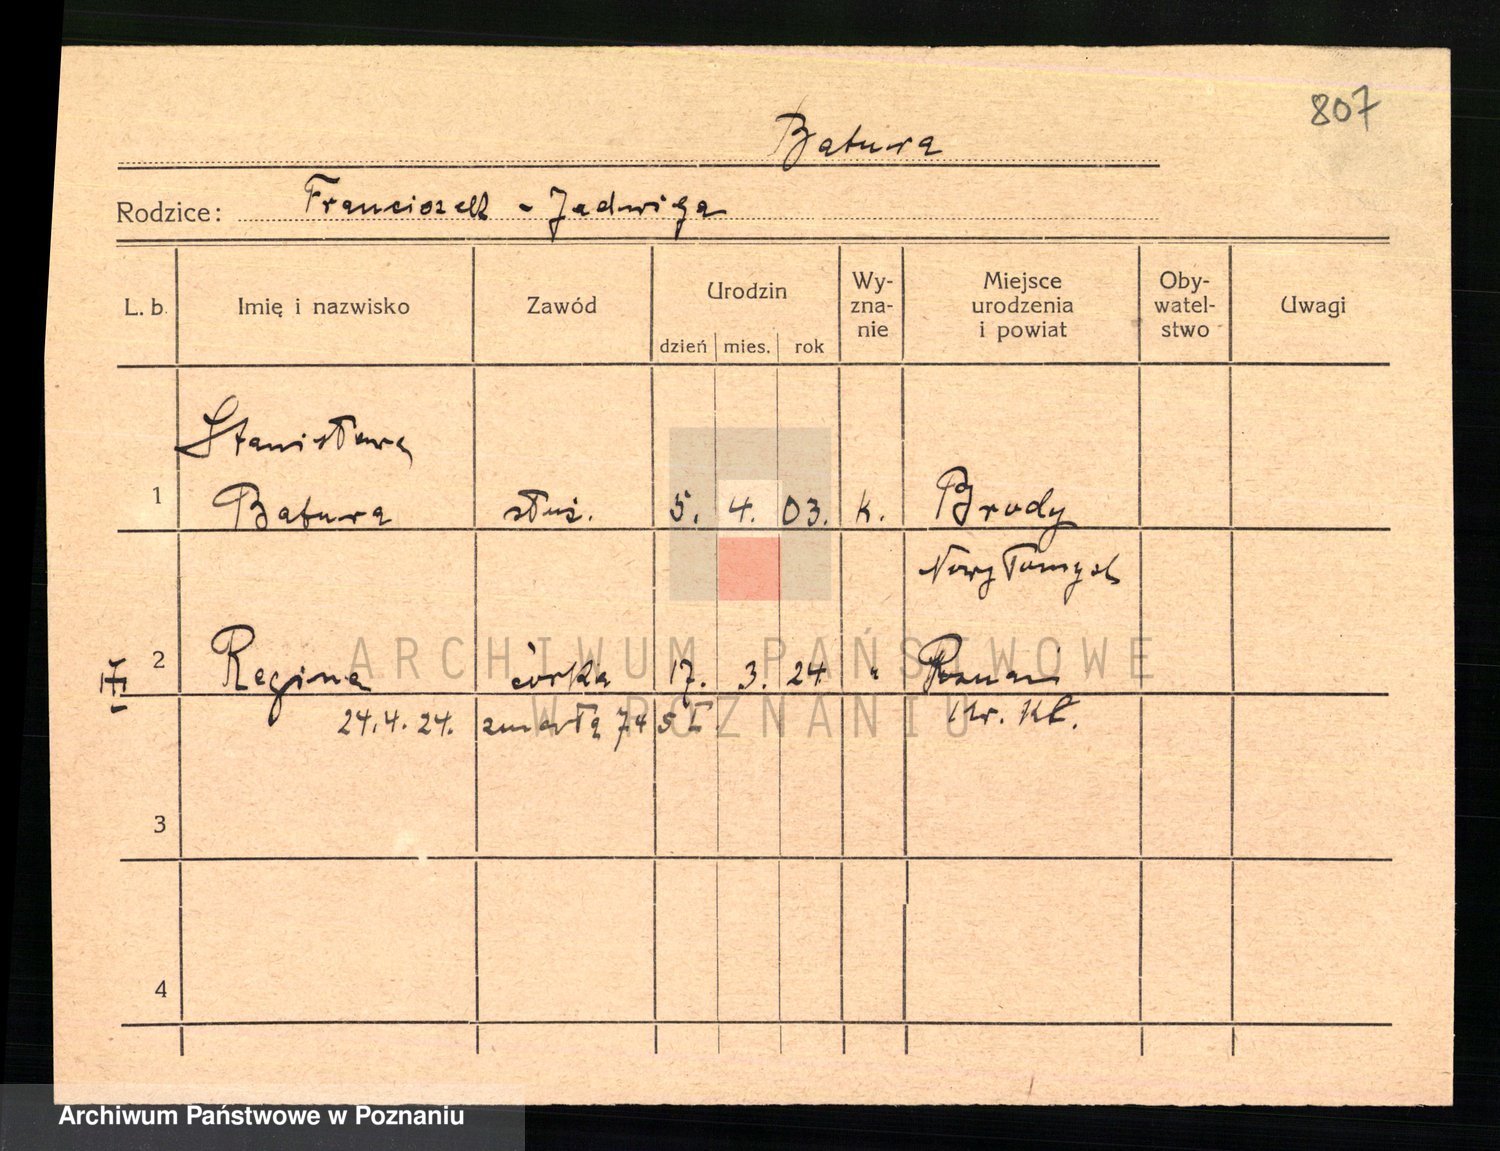 807
Batura
Rodzice: Franciszek - Jadwiga
L. b. Imię i nazwisko Zawód Urodzin dzień mies. rok Wy-zna-nie Miejsce urodzenia i powiat Oby-watel-stwo Uwagi
Stanisława
1 Batura służ. 5. 4. 03. k. Brody
Nowy Tomyśl
2 Regina córka 17. 3. 24 " Poznań
24.4.24. zmarła
3
4
ARCHIWUM PAŃSTWOWE
W POZNANIU
Archiwum Państwowe w Poznaniu